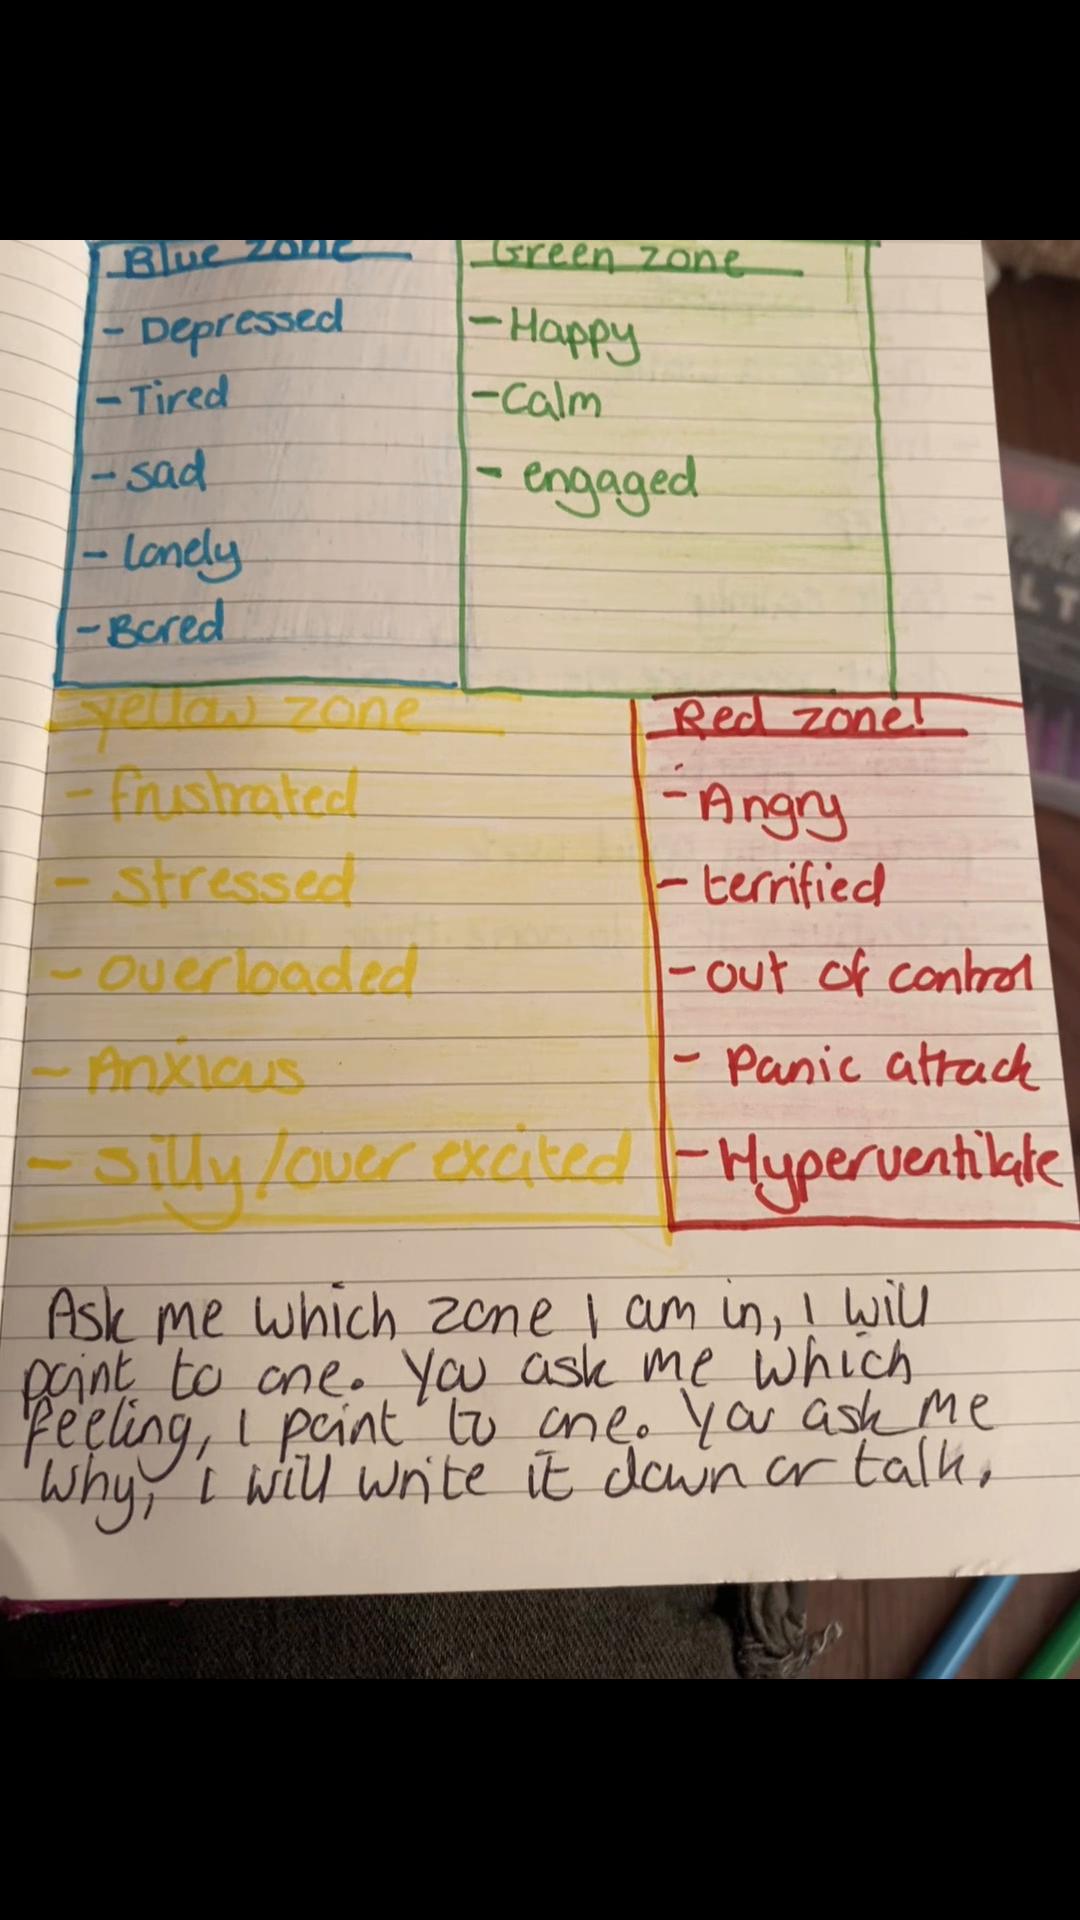 Blue zone
- Depressed
- Tired
- sad
- lonely
- Bored
Green zone
- Happy
- Calm
- engaged
yellow zone
- frustrated
- stressed
- overloaded
- Anxious
- silly/over excited
Red zone!
- Angry
- terrified
- out of control
- Panic attack
- Hyperventilate
Ask me which zone I am in, I will
point to one. You ask me which
feeling, I point to one. You ask me
why, I will write it down or talk.
L T